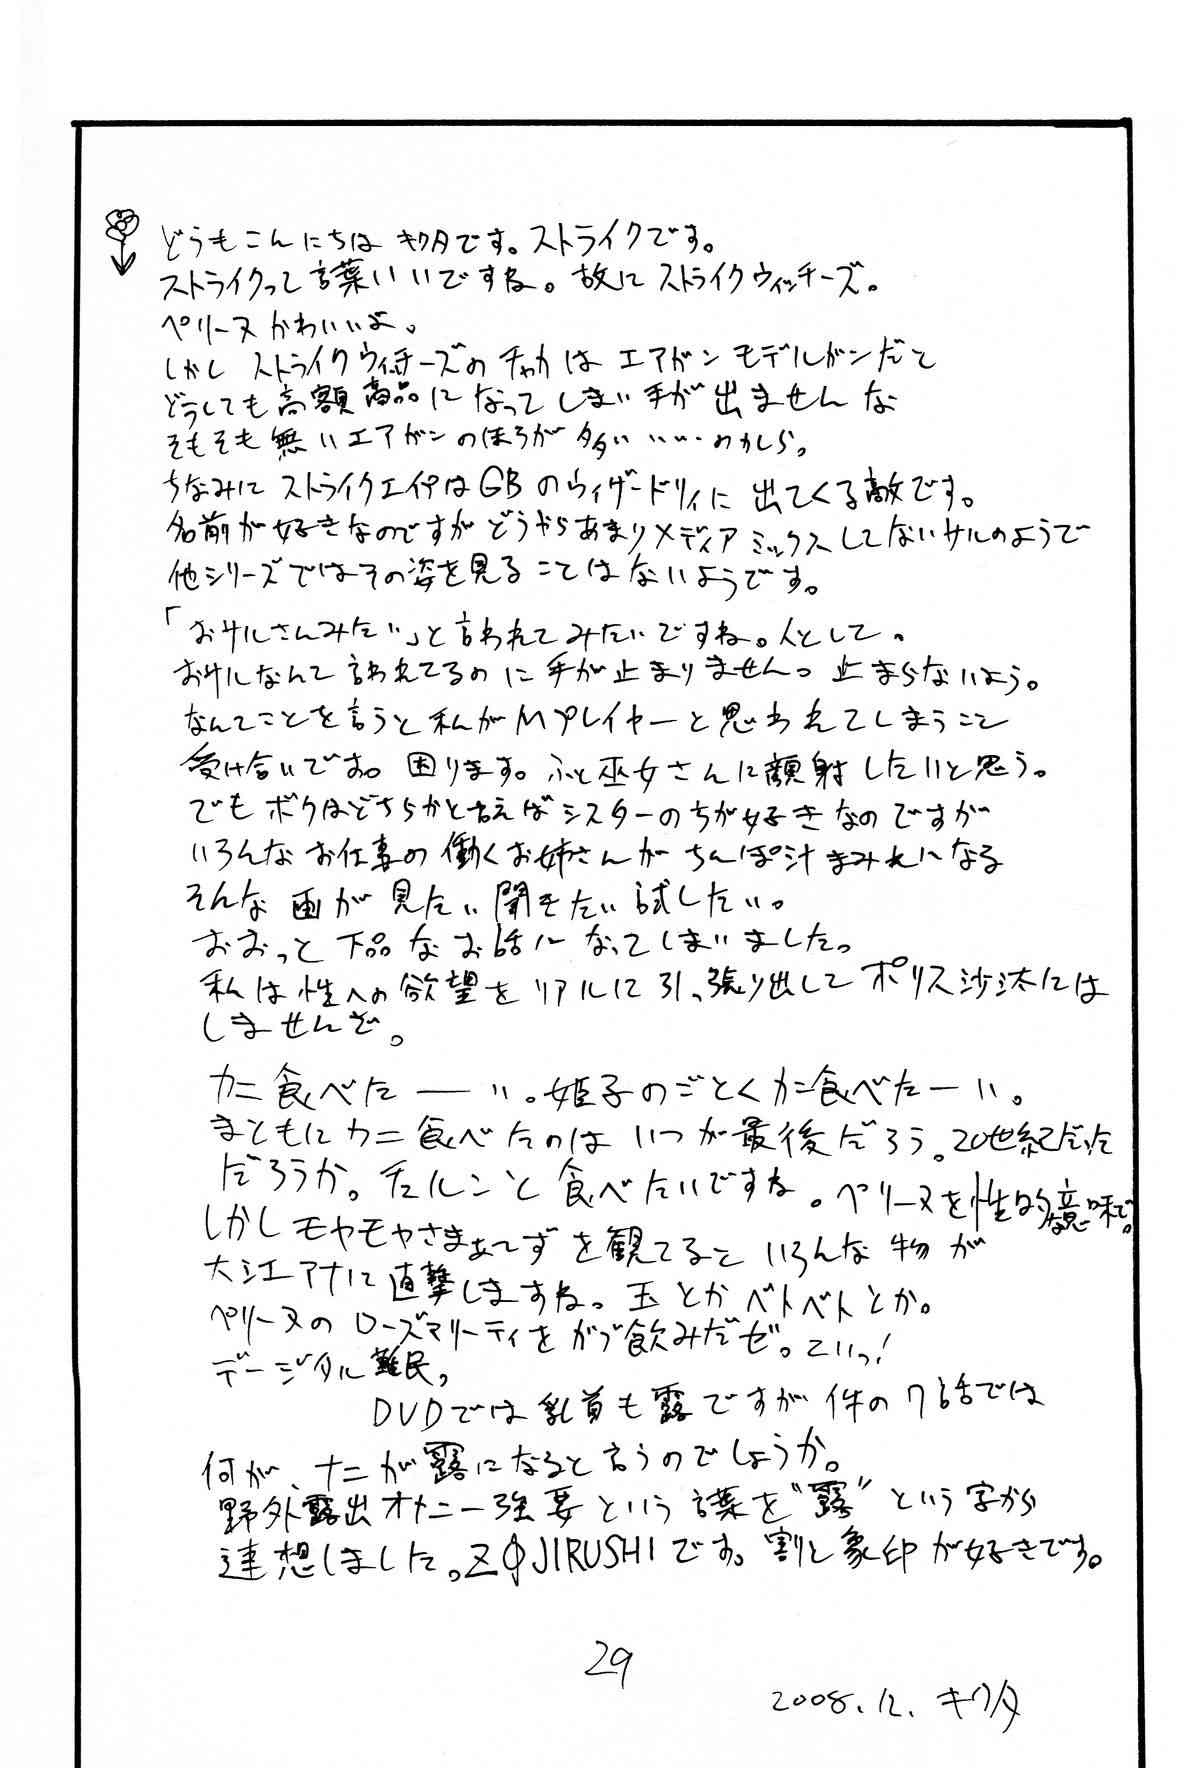 どうもこんにちは キクタです。ストライクです。
ストライクって言葉いいですね。故にストライクウィッチーズ。
ペリーヌかわいいよ。
しかし ストライクウィッチーズのチャカは エアガン モデルガンだと
どうしても高額商品になってしまい手が出ませんな
そもそも無いエアガンのほうが多い
ちなみに ストライクエイプはGBのウィザードリィに出てくる敵です。
名前が好きなのですがどうやらあまりメディアミックスしてないサルのようで
他シリーズではその姿を見ることはないようです。
「おサルさんみたい」と言われてみたいですね。人として。
おサルなんて言われてるのに手が止まりませんっ 止まらないよう。
なんてことを言うと私がMプレイヤーと思われてしまうこと
受け合いです。困ります。ふと巫女さんに顔射したいと思う。
でもボクはどちらかと言えばシスターのちが好きなのですが
いろんなお仕事の働くお姉さんがちんぽ汁まみれになる
そんな画が見たい聞きたい試したい。
おおっと下品なお話になってしまいました。
私は性への欲望をリアルに引っ張り出してポリス沙汰には
しませんぞ。
カニ食べたーい。姫子のごとくカニ食べたーい。
まともにカニ食べたのはいつが最後だろう。20世紀だった
だろうか。チュルンと食べたいですね。ペリーヌを性的な意味で。
しかしモヤモヤさまぁ〜ずを観てるといろんな物が
大江アナに直撃しますね。玉とかベトベトとか。
ペリーヌのローズマリーティをがぶ飲みだゼ。こいっ!
デージタル難民。
DVDでは乳首も露ですが件の7話では
何が、ナニが露になると言うのでしょうか。
野外露出オナニー強要という言葉を“露”という字から
連想しました。ZOJIRUSHIです。割と象印が好きです。
29
2008.12. キクタ